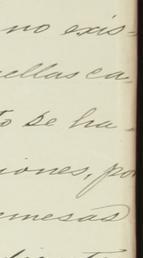 no exis-
ellas ca
to se ha-
iones, po
mesas